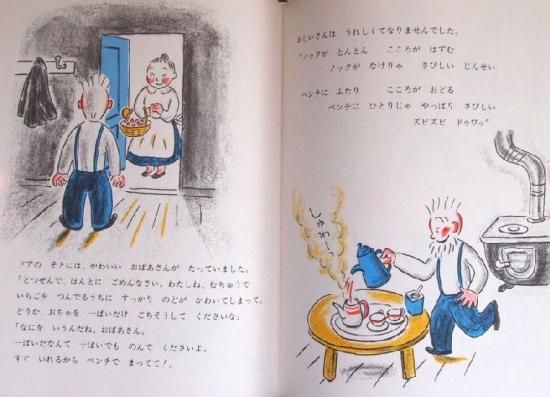 ドアの そとには、かわいい おばあさんが たっていました。
「とつぜんで、ほんとに ごめんなさい。わたしね、むちゅうで
いちごを つんでるうちに すっかり のどが かわいてしまって。
どうか、おちゃを 一ぱいだけ ごちそうして くださいな」
「なにを いうんだね、おばあさん。
一ぱいだなんて 十ぱいでも のんで くださいよ。
すぐ いれるから ベンチで まってて！」
おじいさんは うれしくてなりませんでした。
ノックが とんとん こころが はずむ
ノックが なけりゃ さびしい じんせい
ベンチに ふたり こころが おどる
ベンチに ひとりじゃ やっぱり さびしい
ズビズビ ドゥワッ
しゅわー